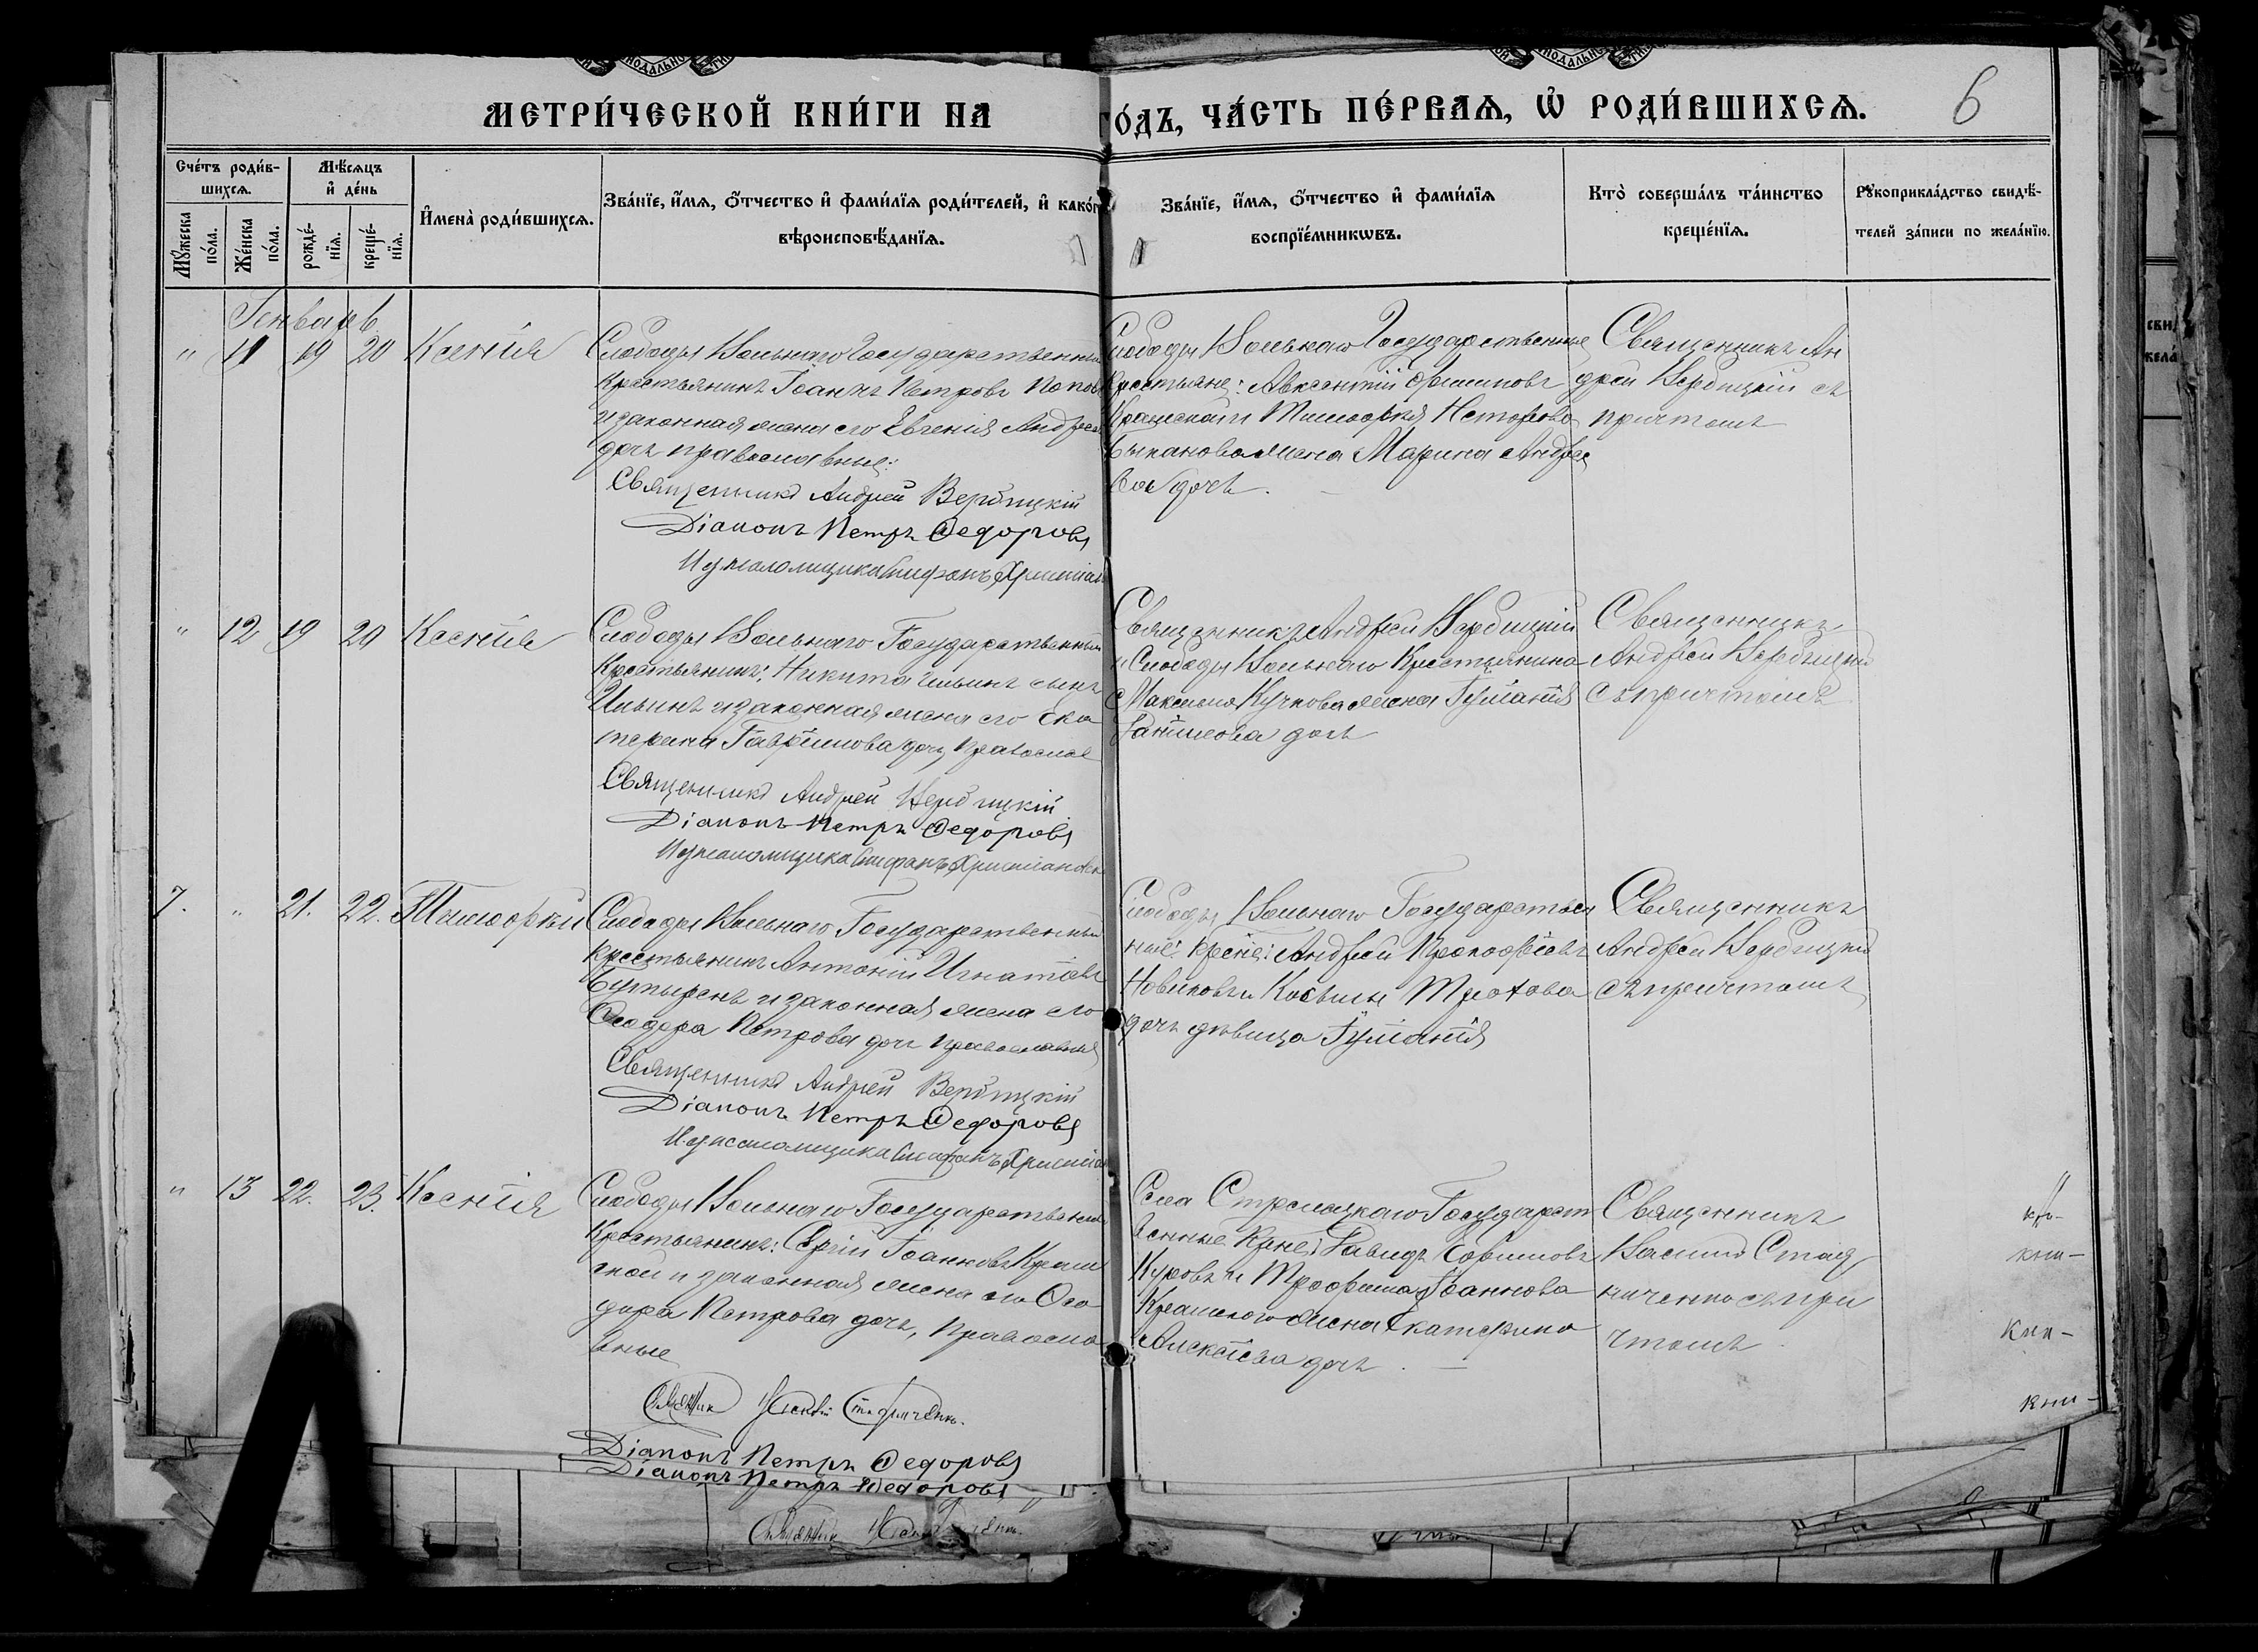 МЕТРИ́ЧЕСКОЙ КНИ́ГИ НА
ГО́ДЪ, ЧА́СТЬ ПЕ́РВАѦ, Ѡ҆ РОДИ́ВШИХСѦ.
6
Сче́тъ роди́в-
шихсѧ.
Мѣ́сѧцъ
и҆ де́нь
Мꙋ́жеска
по́ла.
Же́нска
по́ла.
рожде́-
нїѧ.
креще́-
нїѧ.
И҆мена̀ роди́вшихсѧ.
Зва́нїе, и҆́мѧ, ѻ҆́тчество и҆ фами́лїѧ роди́телей, и҆ како́г
вѣроисповѣ́данїѧ.
Зва́нїе, и҆́мѧ, ѻ҆́тчество и҆ фами́лїѧ
воспрїе́мникѡвъ.
Кто̀ соверша́лъ та́инство
креще́нїѧ.
Рꙋкоприкла́дство свидѣ́-
телей за́писи по жела́нїю.
Генварь
" 11 19 20 Ксенія
Слободы Вольнаго Государственный
Крестьянинъ Іоаннъ Петровъ Попов
и законная жена его Евгенія Андрее
дочь православные:
Священникъ Андрей Вербицкій
Діаконъ Петръ Ѳедоровъ
И. д. псаломщика Стефанъ
Слободы Вольнаго Государственные
Крестьяне: Авксентій
и Тимофея Несторова
жена Марина Андрее
ва дочь.
Священникъ Ан
дрей Вербицкій съ
причтомъ
" 12 19 20 Ксенія
Слободы Вольнаго Государственный
Крестьянинъ: Никита Ильинъ сынъ
Ильинъ и законная жена его Ека
терина Гавріилова дочь, православ
Священникъ Андрей Вербицкій
Діаконъ Петръ Ѳедоровъ
И. д. псаломщика Стефанъ
Священникъ Андрей Вербицкій
и Слободы Вольнаго Крестьянина
Максима Кучкова жена Іуліанія
Даніилова дочь
Священникъ
Андрей Вербицкій
съ причтомъ
7. " 21. 22. Тимофей
Слободы Вольнаго Государственный
Крестьянинъ Антоній Игнатіевъ
и законная жена его
Ѳеодора Петрова дочь православные
Священникъ Андрей Вербицкій
Діаконъ Петръ Ѳедоровъ
И. д. псаломщика Стефанъ
Слободы Вольнаго Государствен
ные: Андрей Прокофіевъ
Новиковъ и Косьмы
дочь дѣвица Іуліанія
Священникъ
Андрей Вербицкій
съ причтомъ
" 13 22. 23. Ксенія
Слободы Вольнаго Государственный
Крестьянинъ: Сергій Іоанновъ Крам
ской и законная жена его Ѳео
дора Петрова дочь, православ
вные
Діаконъ Петръ Ѳедоровъ
Діаконъ Петръ Ѳедоровъ
Села Стрелецкаго Государст
венные Давидъ
Куровъ и Трофима Іоаннова
Крамского жена Екатерина
Алексѣева дочь.
Священникъ
Василій Стад
ниченко съ при
чтомъ